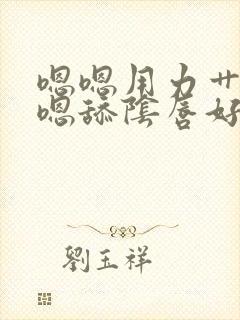 嗯嗯用力艹
嗯舔陰唇好
劉玉祥